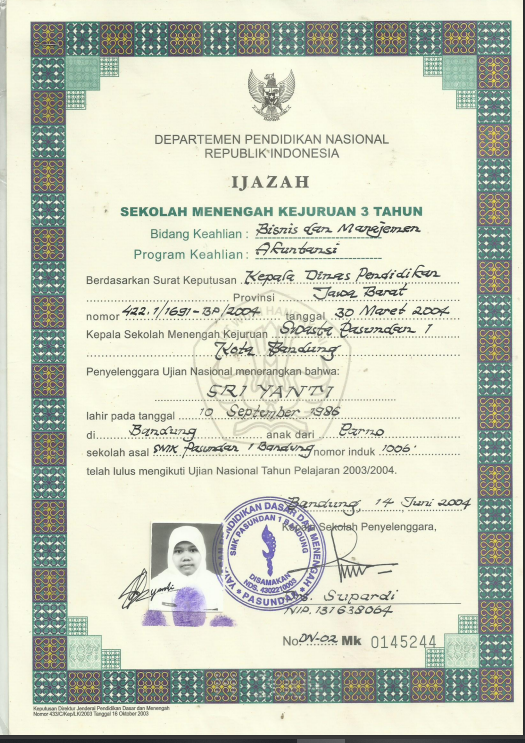 DEPARTEMEN PENDIDIKAN NASIONAL
REPUBLIK INDONESIA
IJAZAH
SEKOLAH MENENGAH KEJURUAN 3 TAHUN
Bidang Keahlian : Bisnis dan Manajemen
Program Keahlian : Akuntansi
Berdasarkan Surat Keputusan Kepala Dinas Pendidikan
Provinsi Jawa Barat
nomor 422.1/1691-BP/2004 tanggal 30 Maret 2004
Kepala Sekolah Menengah Kejuruan Swasta Pasundan 1
Kota Bandung
Penyelenggara Ujian Nasional menerangkan bahwa:
SRI YANTI
lahir pada tanggal 10 September 1986
di Bandung anak dari Parno
sekolah asal SMK Pasundan 1 Bandung nomor induk 1006
telah lulus mengikuti Ujian Nasional Tahun Pelajaran 2003/2004.
Bandung, 14 Juni 2004
Kepala Sekolah Penyelenggara,
PENDIDIKAN DASAR DAN MENENGAH
SMK PASUNDAN 1 BANDUNG
DISAMAKAN
PASUNDAN
Supardi
NIP. 131638064
No. DN-02 Mk 0145244
Keputusan Direktur Jenderal Pendidikan Dasar dan Menengah
Nomor 433/C/Kep/LK/2003 Tanggal 16 Oktober 2003